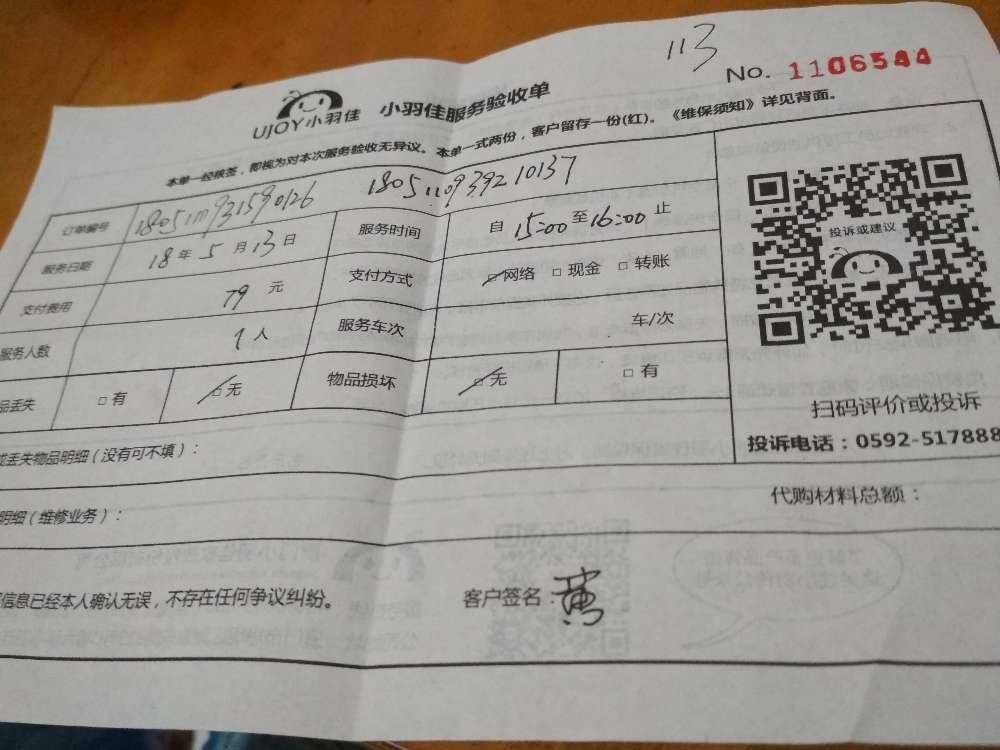 113
No. 1106544
UJOY小羽佳 小羽佳服务验收单
本单一经核签，即视为对本次服务验收无异议。本单一式两份，客户留存一份(红)。《维保须知》详见背面。
订单编号 180511093921 10137
服务日期 18年5月13日 服务时间 自15:00至16:00止
支付费用 79元 支付方式 □网络 □现金 □转账
服务人数 1人 服务车次 车/次
品丢失 □有 □无 物品损坏 □无 □有
投诉或建议
扫码评价或投诉
投诉电话：0592-517888
或丢失物品明细（没有可不填）：
明细（维修业务）： 代购材料总额：
信息已经本人确认无误，不存在任何争议纠纷。 客户签名：黄